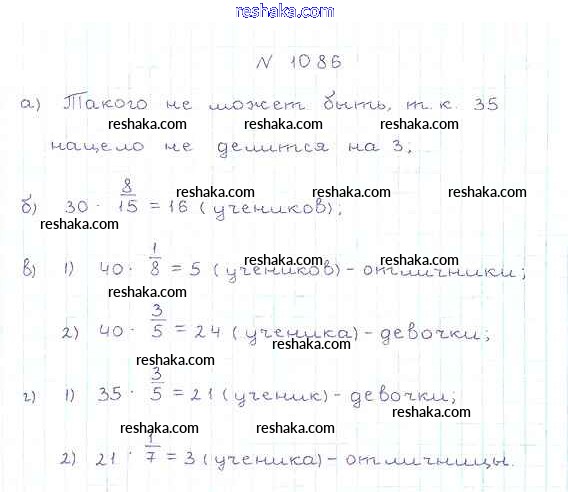 reshaka.com
N 1086
а) Такого не может быть, т.к. 35
reshaka.com reshaka.com reshaka.com
нацело не делится на 3;
reshaka.com reshaka.com
б) 30 · 8/15 = 16 (учеников);
reshaka.com
reshaka.com reshaka.com
в) 1) 40 · 1/8 = 5 (учеников) - отличники;
reshaka.com
2) 40 · 3/5 = 24 (ученика) - девочки;
reshaka.com reshaka.com
г) 1) 35 · 3/5 = 21 (ученик) - девочки;
reshaka.com reshaka.com
reshaka.com reshaka.com
2) 21 · 1/7 = 3 (ученика) - отличницы.
reshaka.com